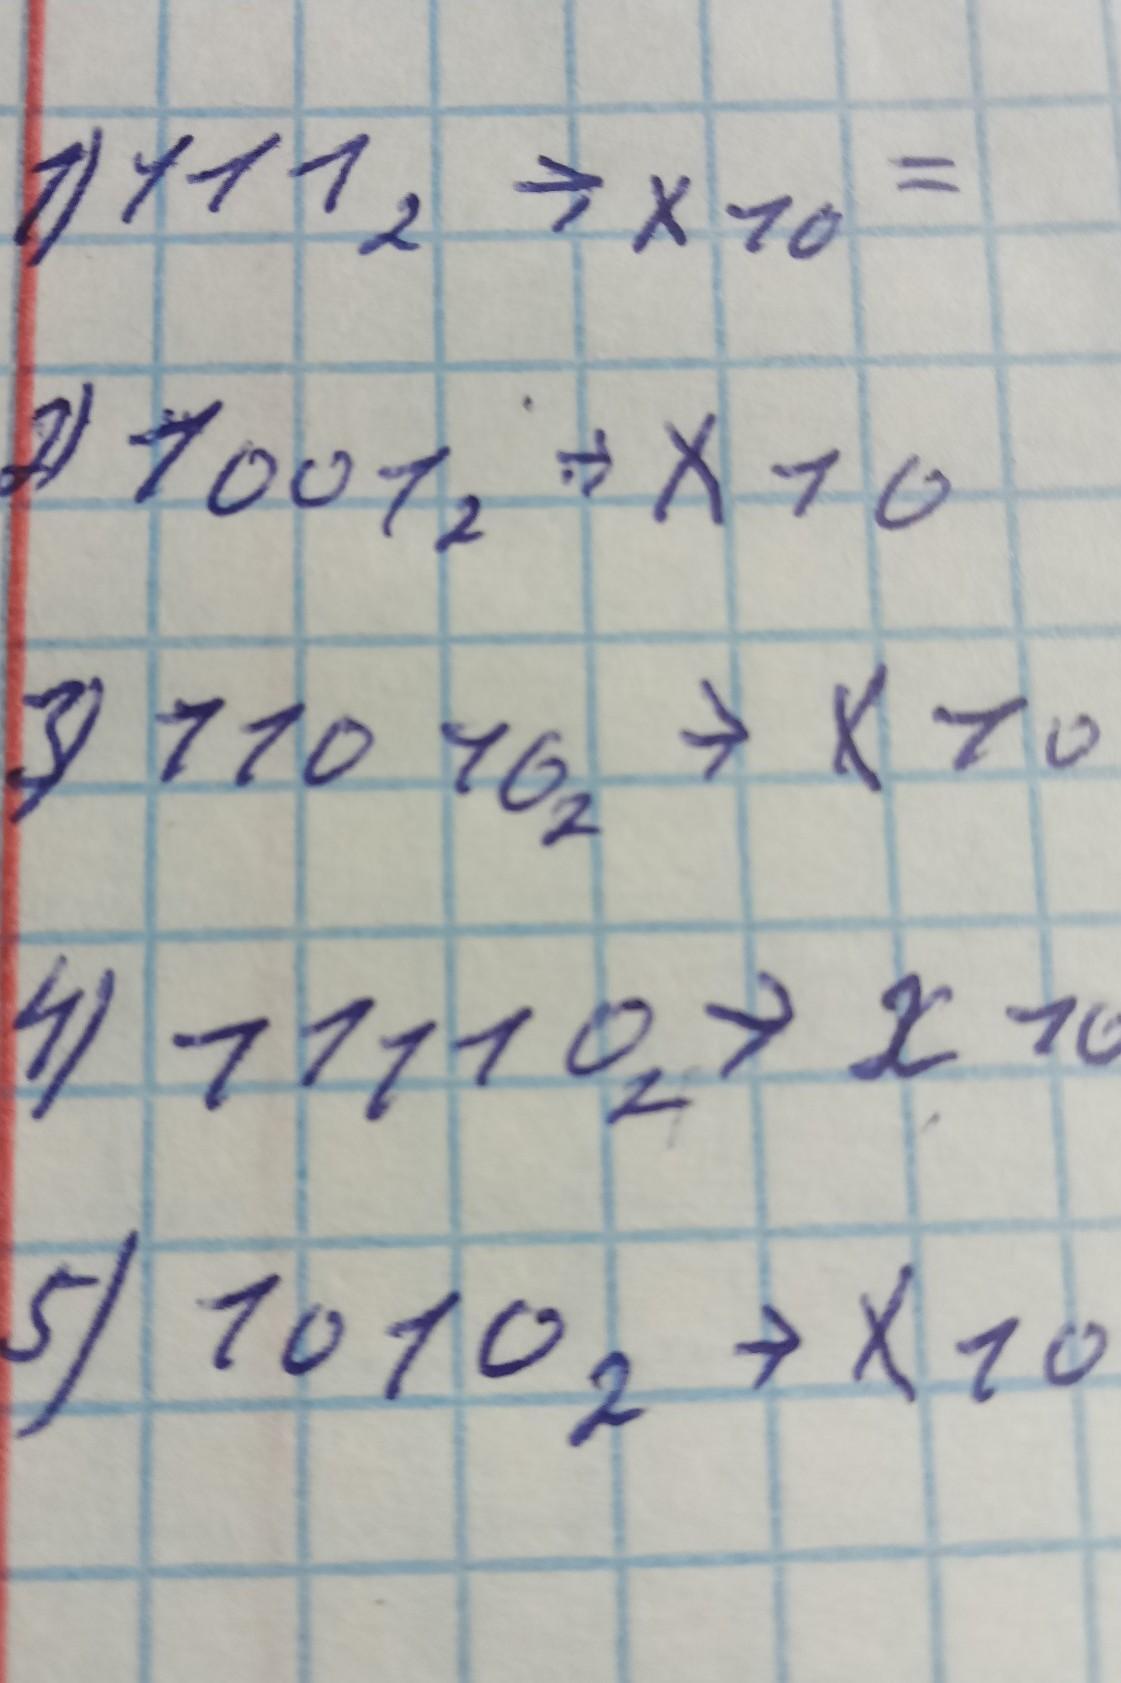 1) 111₂ → X₁₀ =
2) 1001₂ → X 10
3) 11010₂ → X 10
4) 11110₂ → X 10
5) 1010₂ → X 10